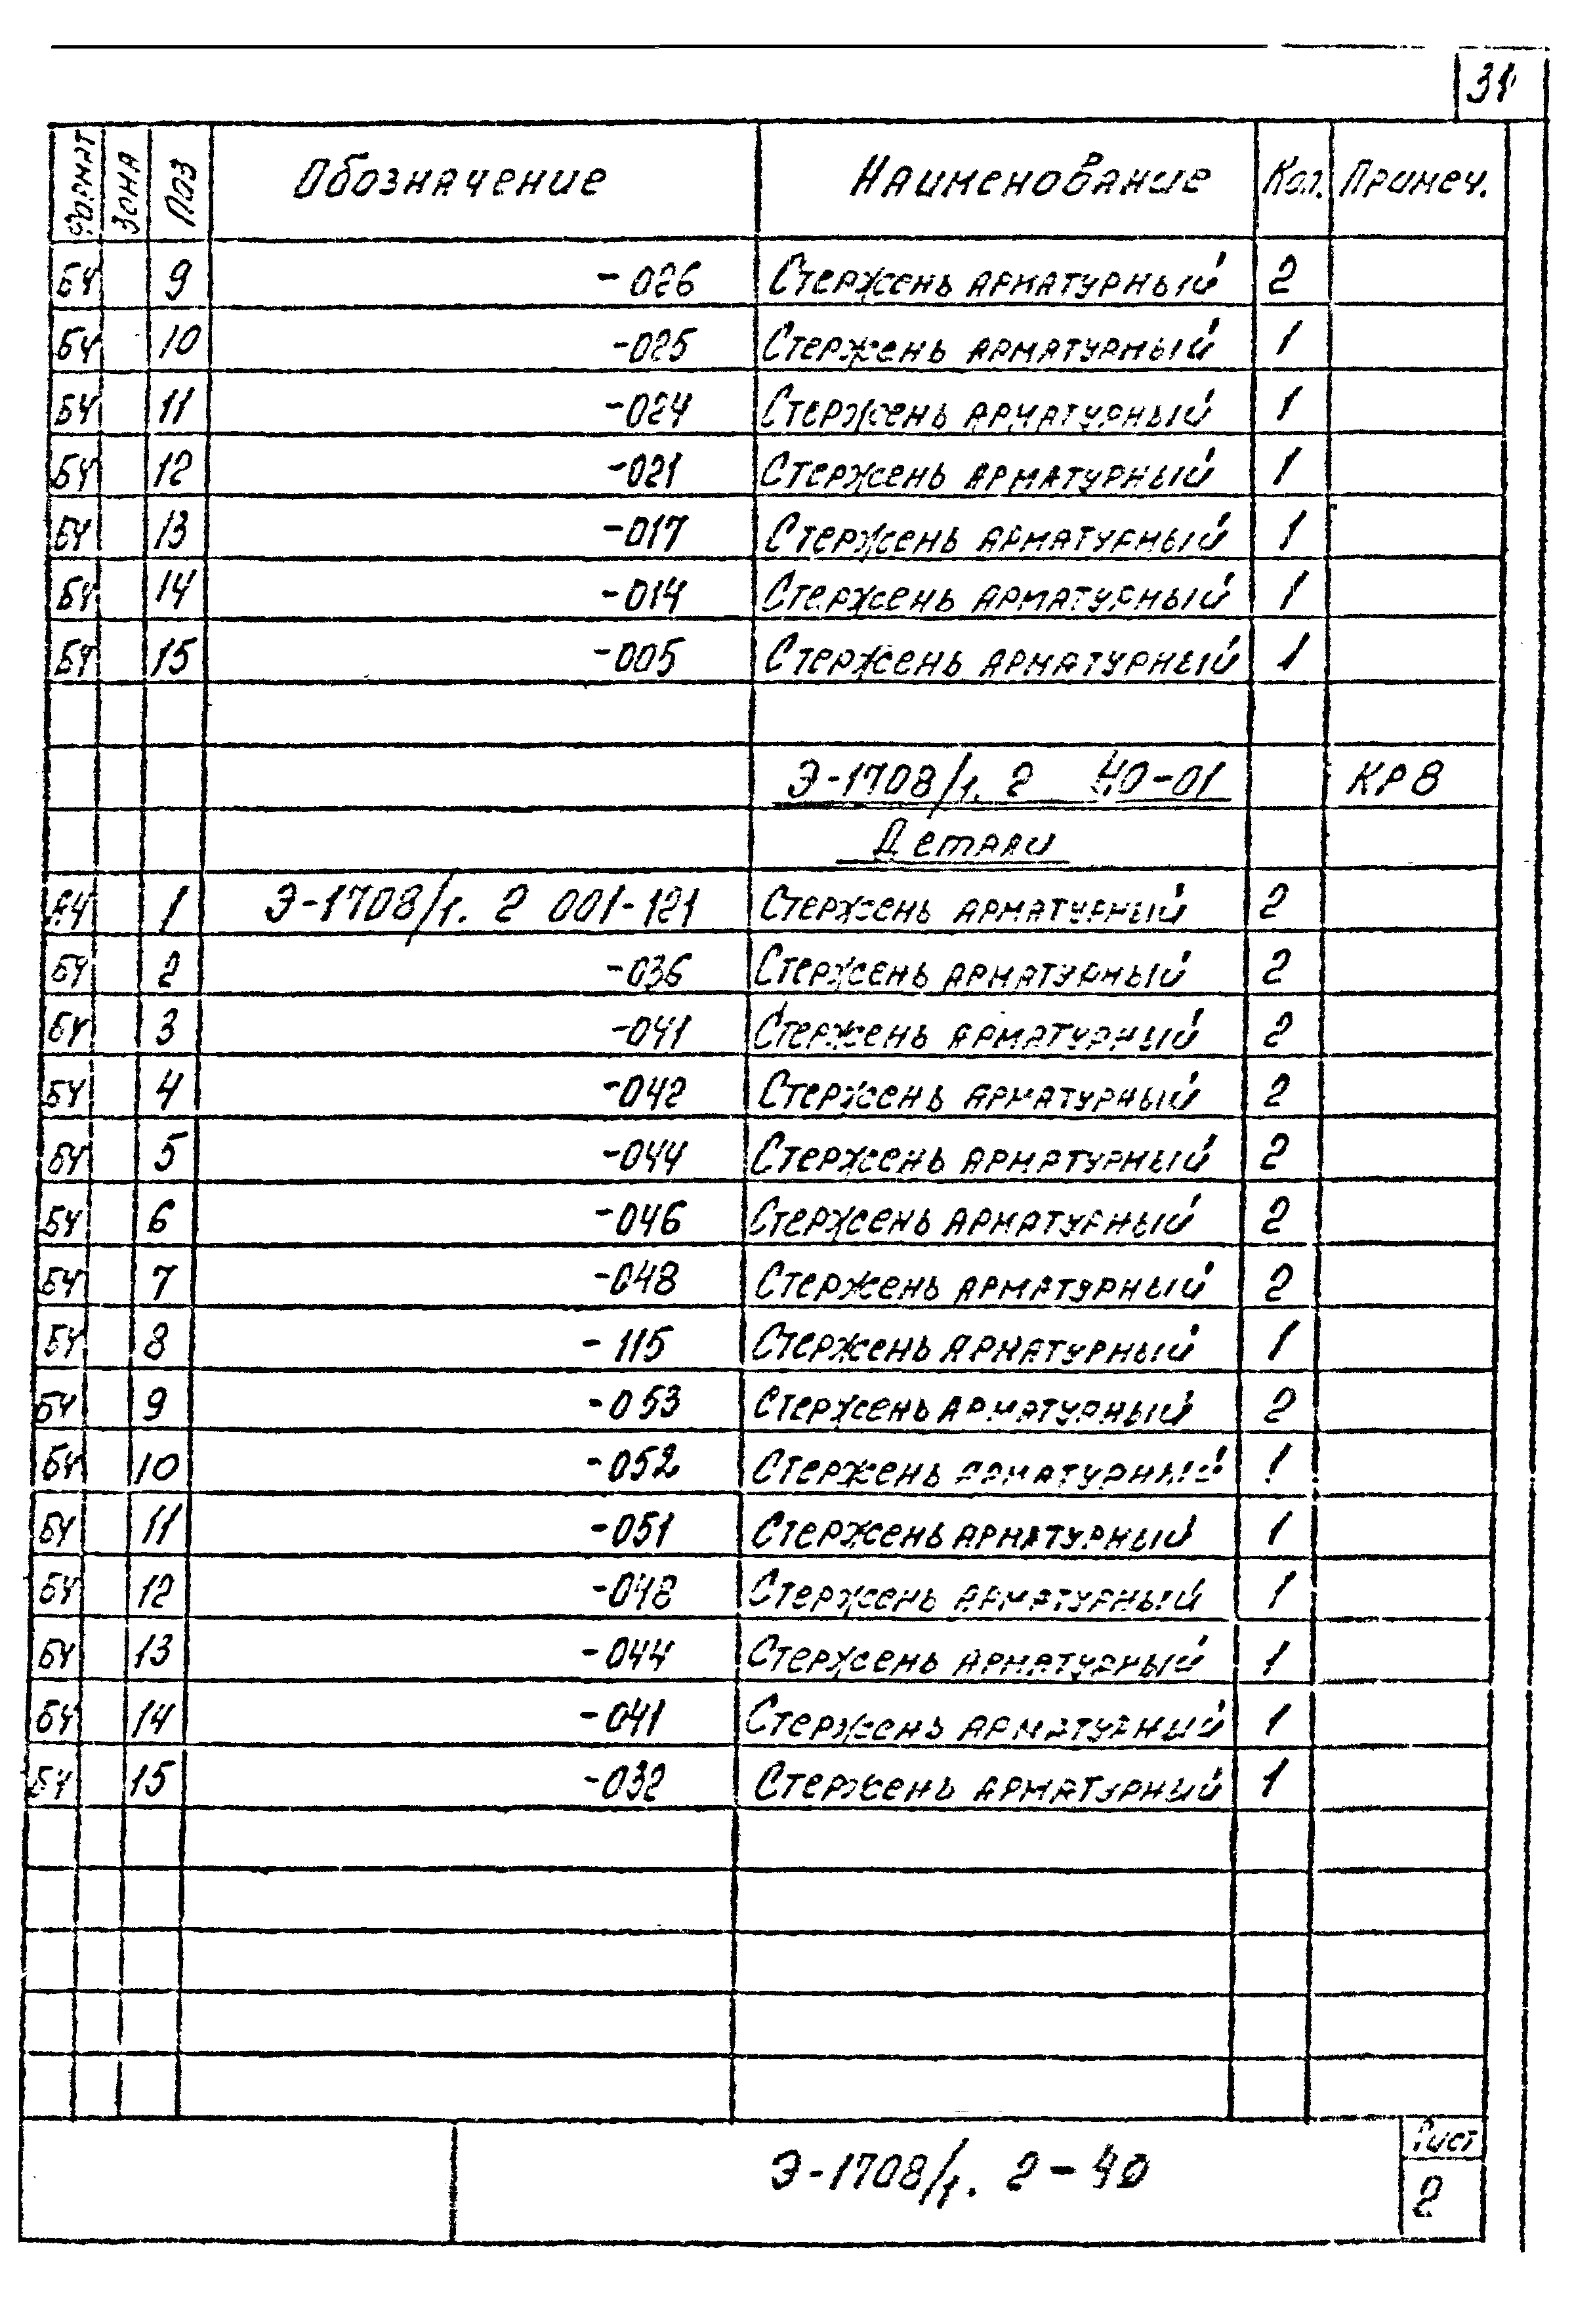 31
Формат Зона Поз Обозначение Наименование Кол. Примеч.
БЧ 9 -026 Стержень арматурный 2
БЧ 10 -025 Стержень арматурный 1
БЧ 11 -024 Стержень арматурный 1
БЧ 12 -021 Стержень арматурный 1
БЧ 13 -017 Стержень арматурный 1
БЧ 14 -014 Стержень арматурный 1
БЧ 15 -005 Стержень арматурный 1
Э-1708/1. 2 40-01 КР8
Детали
А4 1 Э-1708/1. 2 001-121 Стержень арматурный 2
БЧ 2 -036 Стержень арматурный 2
БЧ 3 -041 Стержень арматурный 2
БЧ 4 -042 Стержень арматурный 2
БЧ 5 -044 Стержень арматурный 2
БЧ 6 -046 Стержень арматурный 2
БЧ 7 -048 Стержень арматурный 2
БЧ 8 -115 Стержень арматурный 1
БЧ 9 -053 Стержень арматурный 2
БЧ 10 -052 Стержень арматурный 1
БЧ 11 -051 Стержень арматурный 1
БЧ 12 -048 Стержень арматурный 1
БЧ 13 -044 Стержень арматурный 1
БЧ 14 -041 Стержень арматурный 1
БЧ 15 -032 Стержень арматурный 1
Э-1708/1. 2-40
Лист
2